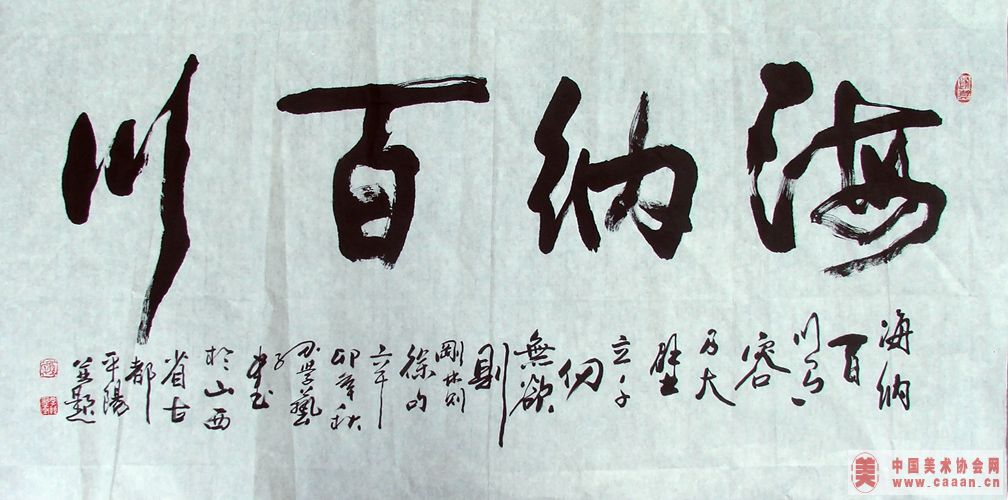 海纳百川
海纳
百
川有
容
乃大
壁
立千
仞
無欲
則
剛林则
徐句
六年
卯年秋
世艺
書
於山西
省古
都
平陽
並题
美
中国美术协会网
www.caaan.cn